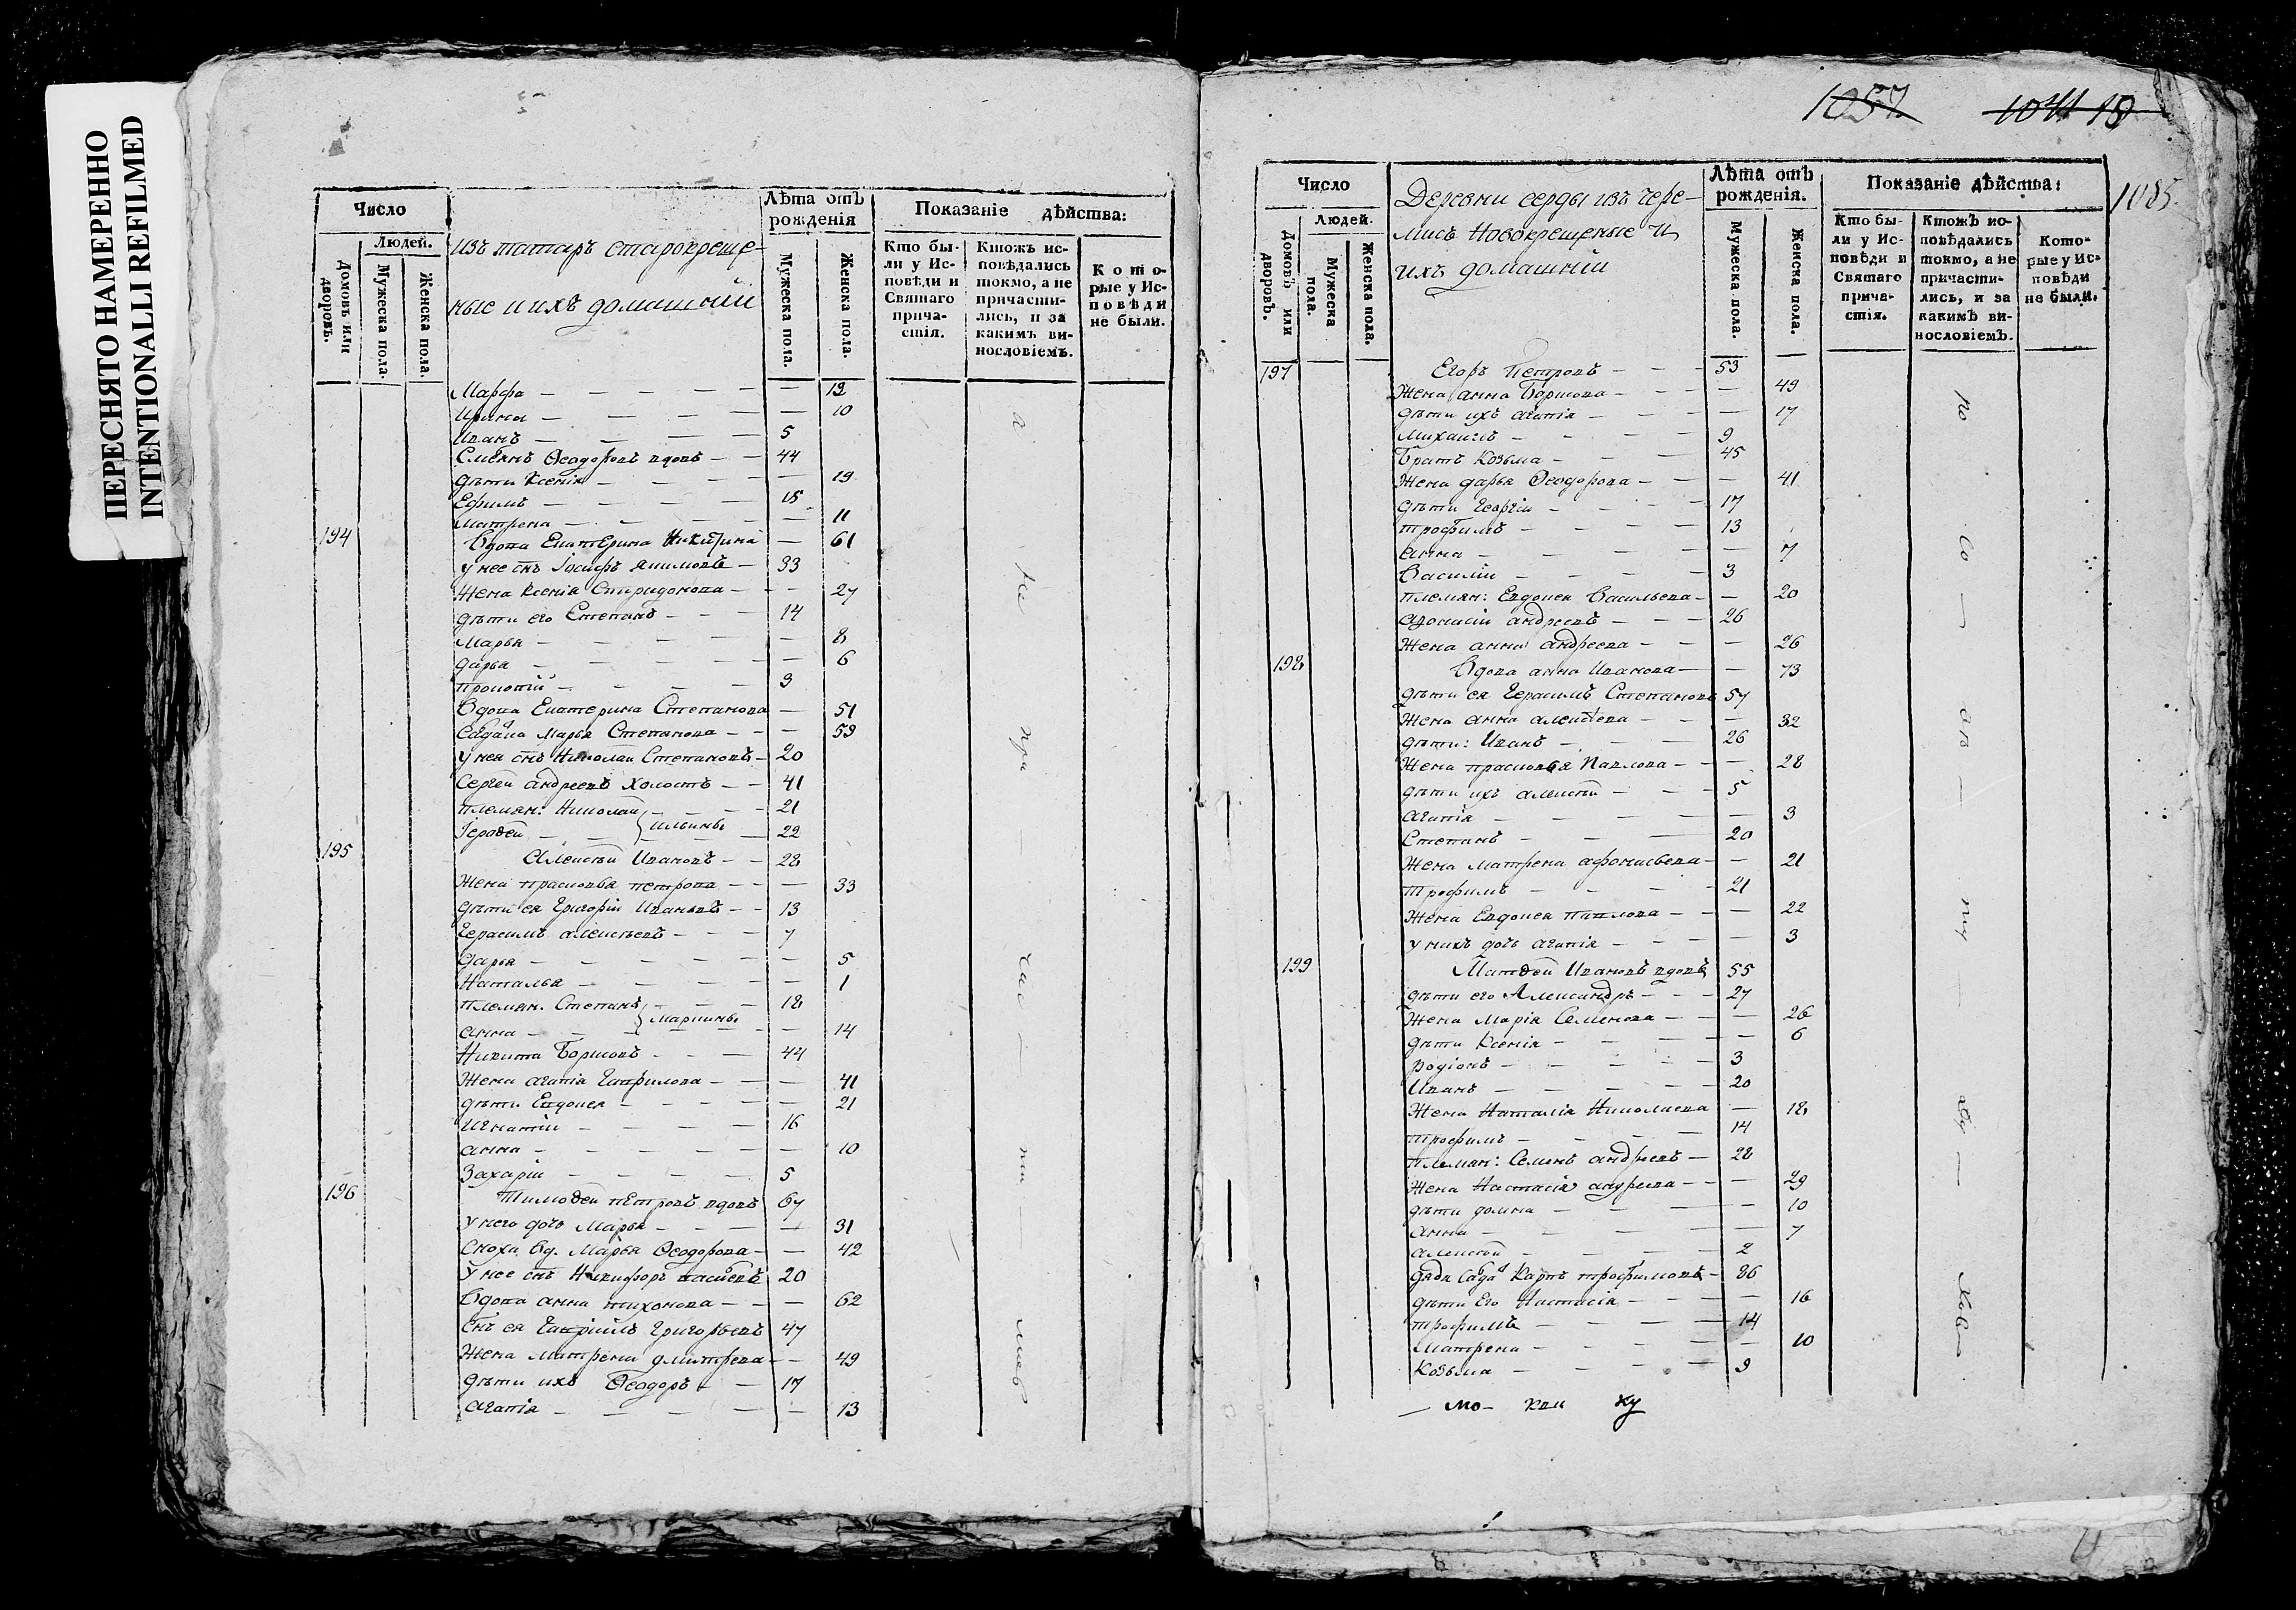 ПЕРЕСНЯТО НАМЕРЕННО
INTENTIONALLI REFILMED
Число
Людей.
Домовъ или дворовъ.
Мужеска пола.
Женска пола.
изъ татаръ старокреще-
ные и ихъ домашнїй
Лѣта отъ рожденїя
Мужеска пола.
Женска пола.
Показанїе дѣйства:
Кто бы-
ли у Ис-
повѣди и
Святаго
прича-
стїя.
Ктожъ ис-
повѣдались
токмо, а не
причасти-
лись, и за
какимъ ви-
нословїемъ.
Кото-
рые у Ис-
повѣди
не были.
Марфа — 12
Ирина — 10
Иванъ — 5
Ѳеодоровъ вдовъ — 44
дѣти Ксенїя — 19
Ефимъ — 15
Матрена — 11
194 Вдова Екатерина Никитина — 61
у нее снъ Іосифъ — 33
жена Ксенїя Спиридонова — 27
дѣти его Степанъ — 14
Марья — 8
дарья — 6
3
Вдова Екатерина Степанова — 51
Марья Степанова — 59
у нея снъ Николай Степановъ — 20
Сергей андреевъ холостъ — 41
племян: Николай — 21
22
195 Алексѣй Ивановъ — 28
жена прасковья петрова — 33
дѣти ея Григорїй Ивановъ — 13
Герасимъ алексѣевъ — 7
дарья — 5
Наталья — 1
племян. Степанъ — 18
анна — 14
Никита Борисовъ — 44
жена агапїя Гаврилова — 41
дѣти Евдокея — 21
Игнатїй — 16
анна — 10
Захарїй — 5
196 Тимоѳей петровъ вдовъ 67
у него дочь Марья — 31
Сноха вд. Марья Ѳеодорова — 42
у нее снъ Никифоръ 20
Вдова анна тихонова — 62
снъ ея Гаврїилъ Григорьевъ 47
жена Матрена дмитрева — 49
дѣти ихъ Ѳеодоръ — 17
агапїя — 13
1057 1041
1085
Число
Людей.
Домовъ или дворовъ.
Мужеска пола.
Женска пола.
Деревни серды изъ чере-
мисъ Новокрещеные и
ихъ домашнїи
Лѣта отъ рожденїя.
Мужеска пола.
Женска пола.
Показанїе дѣйства:
Кто бы-
ли у Ис-
повѣди и
Святаго
прича-
стїя.
Ктожъ ис-
повѣдались
токмо, а не
причасти-
лись, и за
какимъ ви-
нословїемъ.
Кото-
рые у Ис-
повѣди
не были.
197 Егоръ Петровъ — 53
жена анна Борисова — 49
дѣти ихъ агапїя — 17
Михаилъ — 9
Братъ Козьма — 45
жена дарья Ѳеодорова — 41
дѣти Георгїй — 17
трофимъ — 13
анна — 7
Василїй — 3
племян: Евдокея Васильева — 20
афонасїй андреевъ — 26
жена анна андреева — 26
198 Вдова анна Иванова — 73
дѣти ея Герасимъ Степановъ 57
жена анна алексѣева — 32
дѣти: Иванъ — 26
жена прасковья Павлова — 28
дѣти ихъ алексѣй — 5
агапїя — 3
Степанъ — 20
жена матрена афонасьева — 21
трофимъ — 21
жена Евдокея павлова — 22
у нихъ дочь агапїя — 3
199 Матѳей Ивановъ вдовъ 55
дѣти его Александръ — 27
жена Марїя Семенова — 26
дѣти Ксенїя — 6
родїонъ — 3
Иванъ — 20
жена Наталїя Николаева — 18
трофимъ — 14
племян: Семенъ андреевъ — 28
жена Настасїя андреева — 29
дѣти домна — 10
анна — 7
алексѣй — 2
дядя Карпъ трофимовъ — 36
дѣти Его Настасїя — 16
трофимъ — 14
матрена — 10
козьма — 9